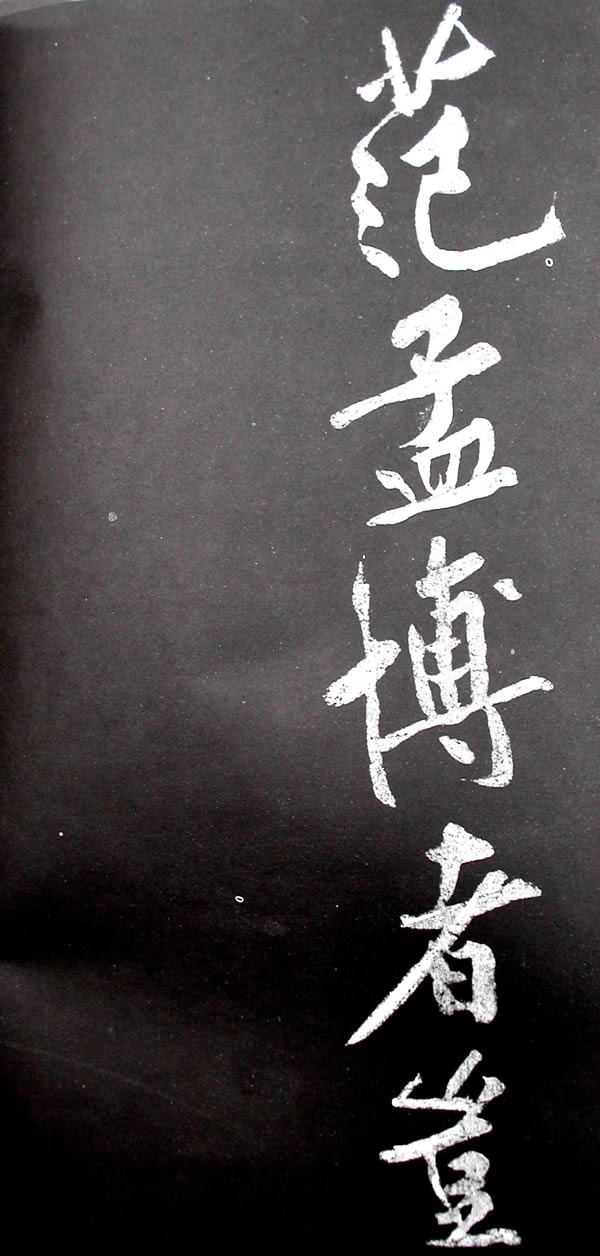 范孟博者豈